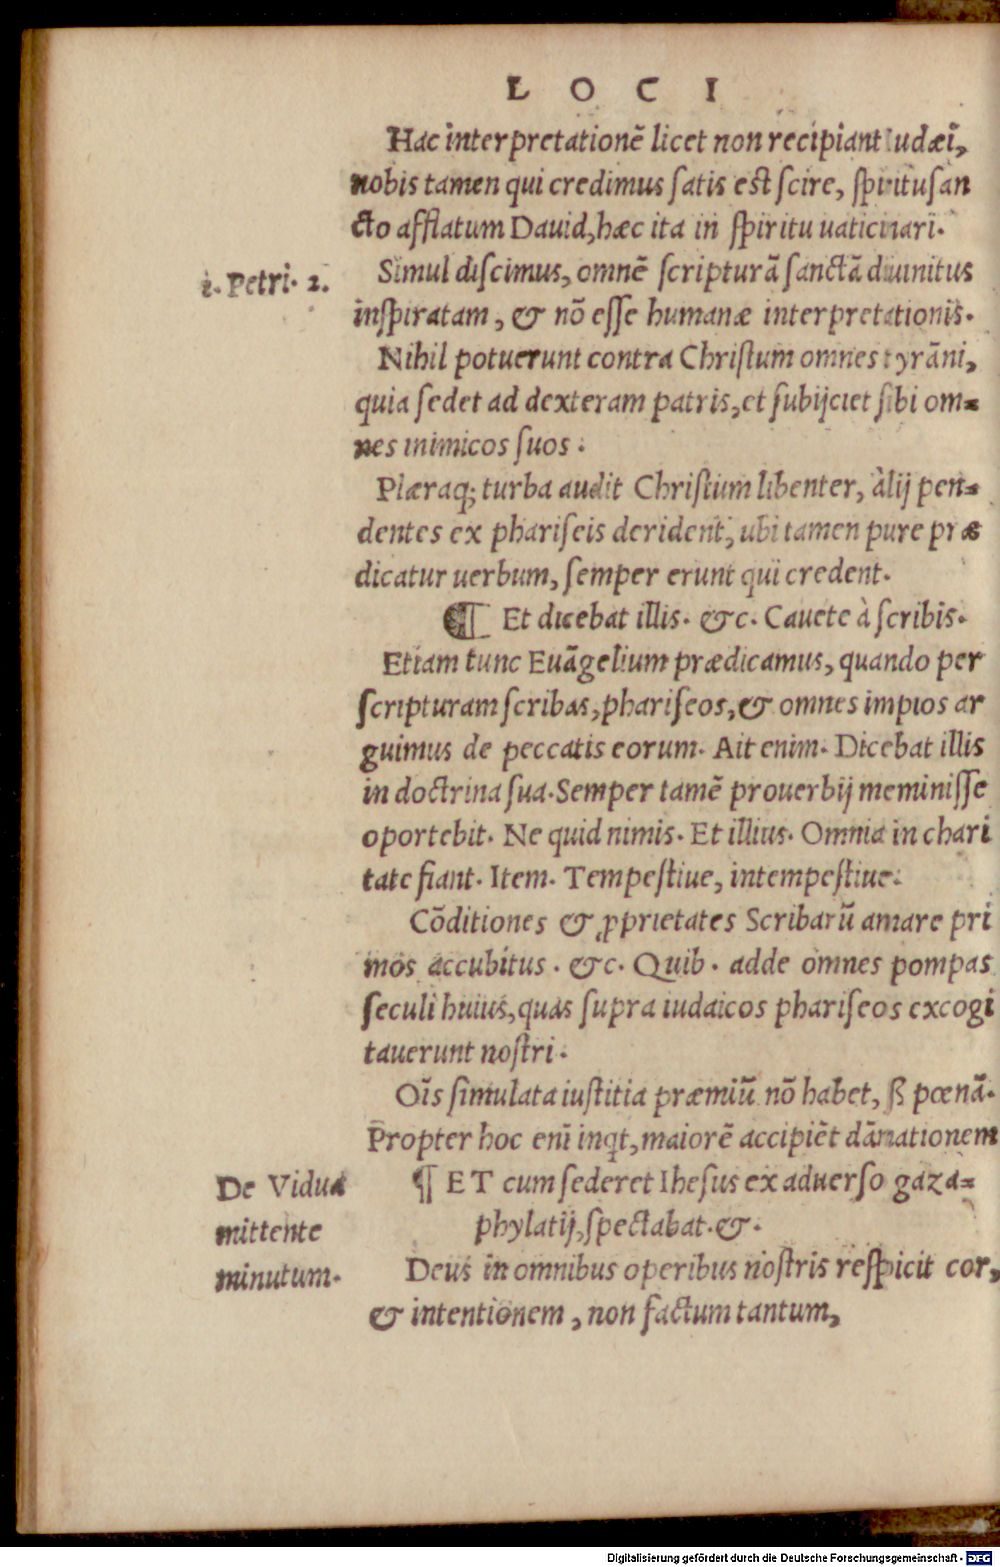 LOCI
Hac interpretationē licet non recipiant Iudæi,
nobis tamen qui credimus satis est scire, spiritusan
cto afflatum Dauid, hæc ita in spiritu uaticinari.
2. Petri. 1.
Simul discimus, omnē scripturā sanctā diuinitus
inspiratam, & nō esse humanæ interpretationis.
Nihil potuerunt contra Christum omnes tyrāni,
quia sedet ad dexteram patris, et subijciet sibi om=
nes inimicos suos.
Plæraq; turba audit Christum libenter, àlij pen=
dentes ex phariseis derident, ubi tamen pure præ
dicatur uerbum, semper erunt qui credent.
¶ Et dicebat illis. &c. Cauete à scribis.
Etiam tunc Euāgelium prædicamus, quando per
scripturam scribas, phariseos, & omnes impios ar
guimus de peccatis eorum. Ait enim. Dicebat illis
in doctrina sua. Semper tamē prouerbij meminisse
oportebit. Ne quid nimis. Et illius. Omnia in chari
tate fiant. Item. Tempestiue, intempestiue.
Cōditiones & ꝓprietates Scribarū amare pri
mos accubitus. &c. Quib. adde omnes pompas
seculi huius, quas supra iudaicos phariseos excogi
tauerunt nostri.
Oīs simulata iustitia præmiū nō habet, ß pœnā.
Propter hoc enī inqt, maiorē accipiēt dānationem
De Vidua
mittente
minutum.
¶ ET cum sederet Ihesus ex aduerso gaza=
phylatij, spectabat. &.
Deus in omnibus operibus nostris respicit cor,
& intentionem, non factum tantum,
Digitalisierung gefördert durch die Deutsche Forschungsgemeinschaft - DFG